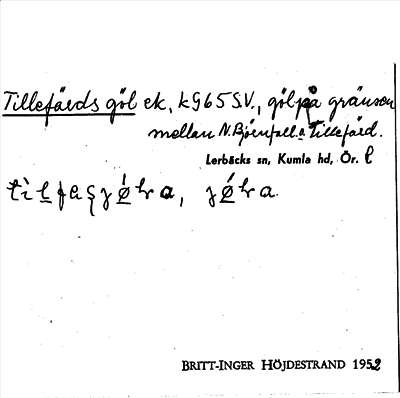 Tillefärds göl ek, k965S.V., göl på gränsen
mellan N.Björnfall o. Tillefärd.
Lerbäcks sn, Kumla hd, Ör. l
BRITT-INGER HÖJDESTRAND 1952